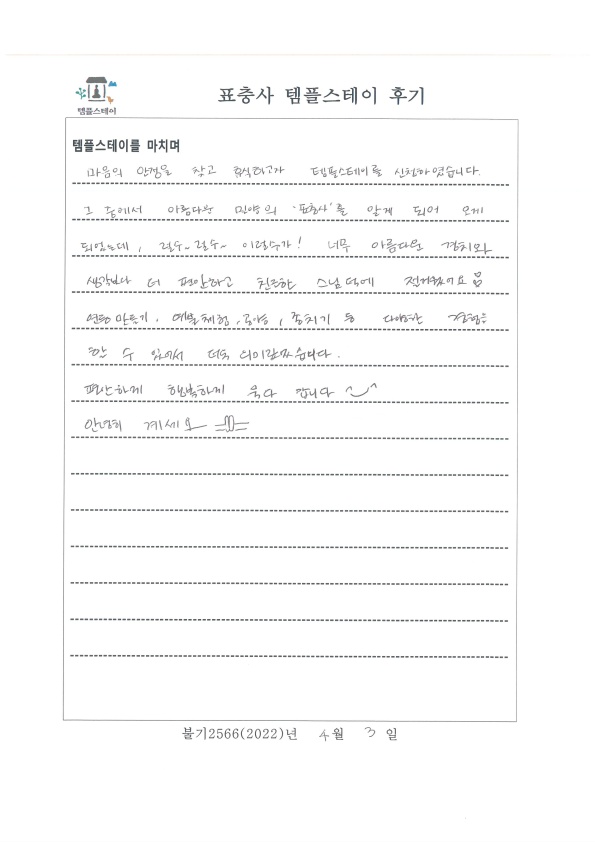 템플스테이
표충사 템플스테이 후기
템플스테이를 마치며
마음의 안정을 찾고 휴식하고자 템플스테이를 신청하였습니다.
그 중에서 아름다운 밀양의 '표충사'를 알게 되어 오게
되었는데, 이럴수가! 너무 아름다운 경치와
생각보다 더 편안하고 친절한 스님 덕에 즐거웠어요
연등만들기, 예불체험, 공양, 종치기 등 다양한 경험을
할 수 있어서 더욱 의미있었습니다.
편안하게 행복하게 묵다 갑니다
안녕히 계세요
불기2566(2022)년 4월 3일